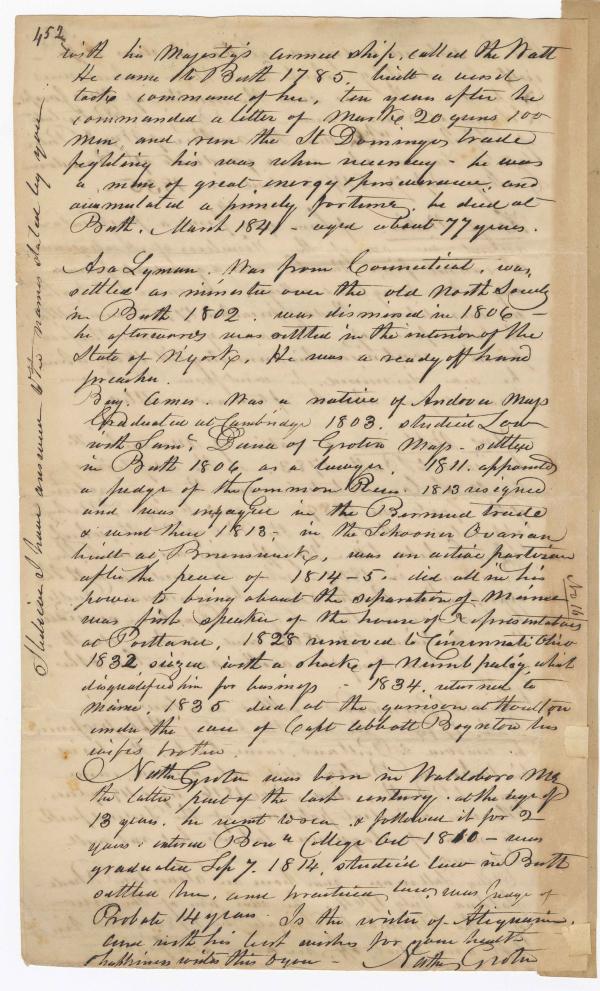 452
with his Majesty's armed ship, called the Watt
He came to Bath 1785 built a vessel
took command of her, ten years after he
commanded a letter of Marke 20 guns 100
men and run the St Domingo trade
fighting his was when necessary - he was
a man of great energy & perseverance, and
accumulated a princely fortune, he died at
Bath, March 184 - aged about 77 years.
Asa Lyman. Was from Connecticut, was
settled as minister over the old North Society
in Bath 1802. was dismissed in 1806 -
he afterwards was settled in the interior of the
State of N York, He was a ready off hand
preacher.
Benj. Ames. Was a native of Andover Mass
Graduated at Cambridge 1803. studied Law
with Saml. Dana of Groton Mass - settled
in Bath 1806, as a lawyer. 1811. appointed
a judge of the Common Pleas. 1813 resigned
and was engaged in the Bermuda trade
& went there 1813, in the Schooner
built at Brunswick, was an active partisan
after the peace of 1814-5. did all in his
power to bring about the separation of Maine
was first speaker of the house of Representatives
at Portland, 1828 removed to Cincinnati Ohio
1832 seized with a shock of Numb palsy, which
disqualified him for business - 1834, returned to
Maine, 1835 died at the garrison at Houlton
under the care of Capt Abbott Boynton his
wife's brother.
Nathl Groton was born in Waldoboro Me
the latter part of the last century. at the age of
13 years. he went to sea & followed it for 2
years. entered Bown College Oct 1810 - was
graduated Sep 7. 1814, studied law in Bath
settled here, and practiced law, was Judge of
Probate 14 years. Is the writer of
and with his best wishes for your health
& happiness writes this to you - Nathl Groton
I have answered the names stated by you
No 16